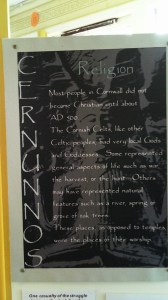 CERNUNNOS
Religion
Most people in Cornwall did not
become Christian until about
AD 500.
The Cornish Celts, like other
Celtic peoples, had very local Gods
and Goddesses. Some represented
general aspects of life such as war,
the harvest, or the hunt. Others
may have represented natural
features such as a river, spring or
grove of oak trees.
These places, as opposed to temples,
were the places of their worship.
One casualty of the struggle